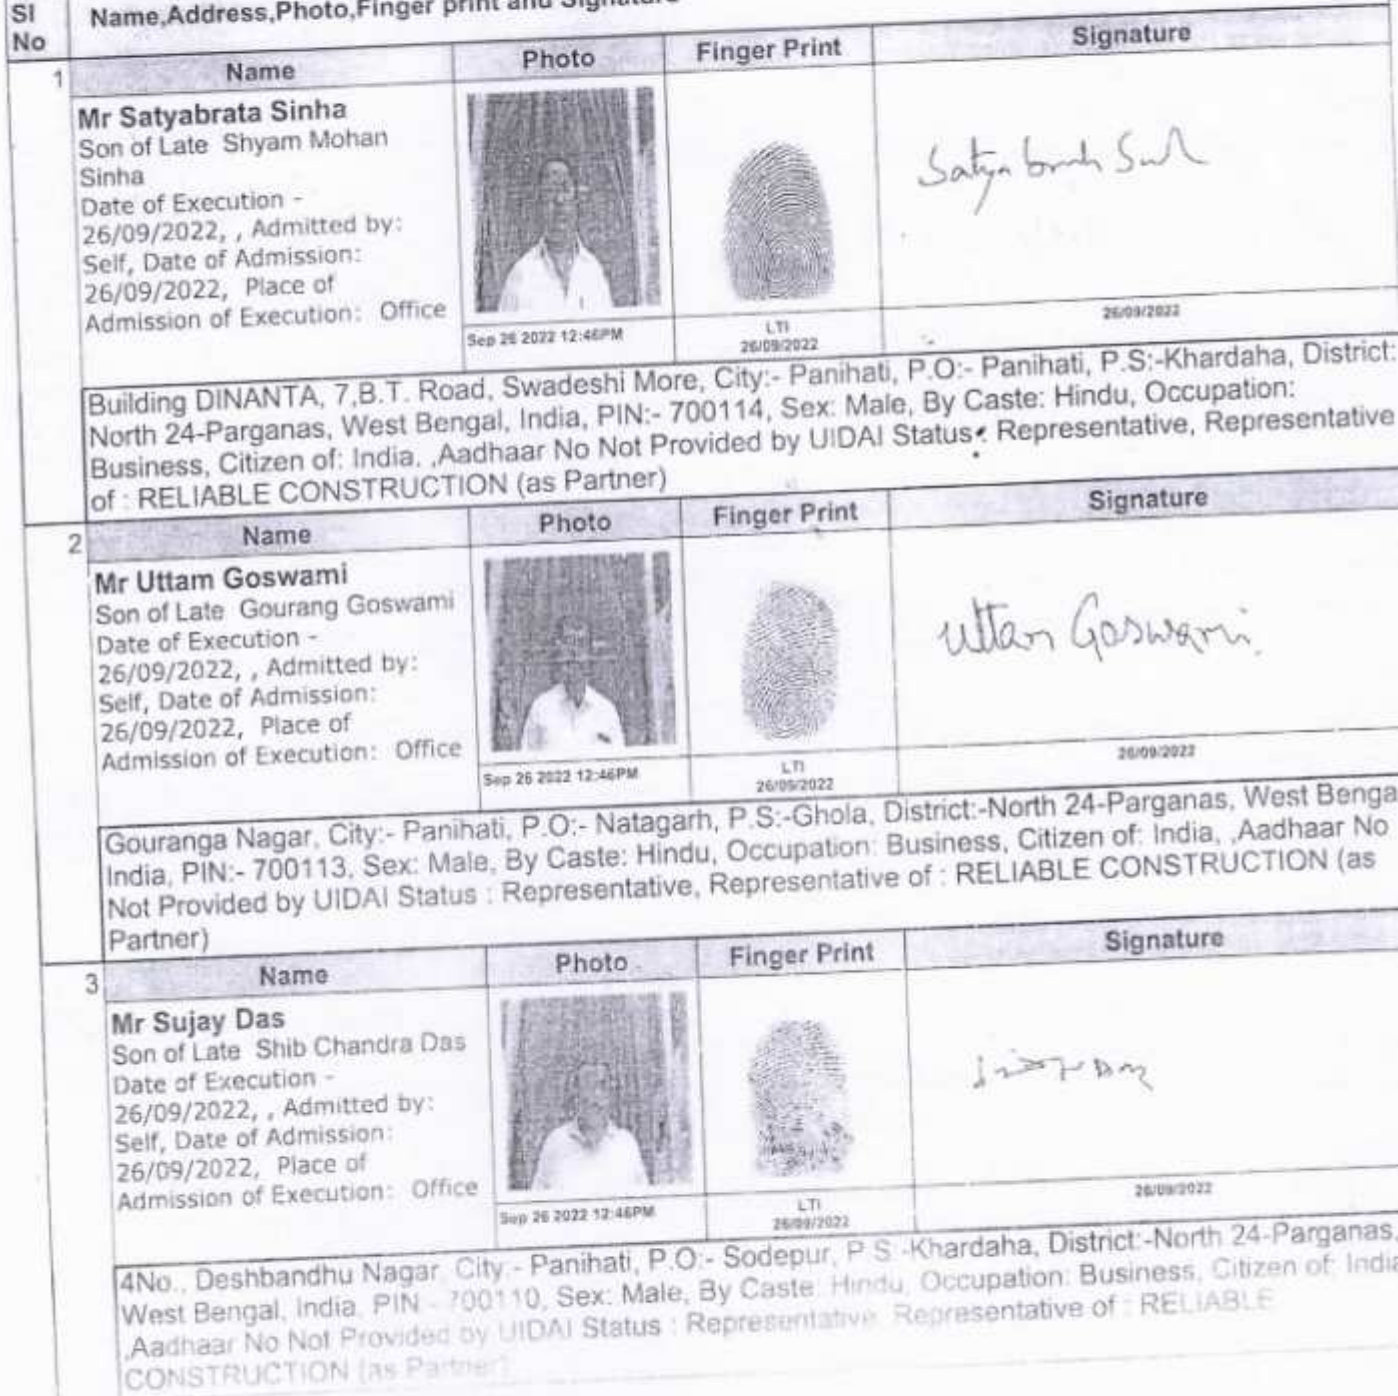 Sl
No
Name,Address,Photo,Finger print and Signature
1
Name
Photo
Finger Print
Signature
Mr Satyabrata Sinha
Son of Late Shyam Mohan
Sinha
Date of Execution -
26/09/2022, , Admitted by:
Self, Date of Admission:
26/09/2022, Place of
Admission of Execution: Office
Sep 26 2022 12:46PM
LTI
26/09/2022
26/09/2022
Building DINANTA, 7,B.T. Road, Swadeshi More, City:- Panihati, P.O:- Panihati, P.S:-Khardaha, District:
North 24-Parganas, West Bengal, India, PIN:- 700114, Sex: Male, By Caste: Hindu, Occupation:
Business, Citizen of: India, ,Aadhaar No Not Provided by UIDAI Status : Representative, Representative
of : RELIABLE CONSTRUCTION (as Partner)
2
Name
Photo
Finger Print
Signature
Mr Uttam Goswami
Son of Late Gourang Goswami
Date of Execution -
26/09/2022, , Admitted by:
Self, Date of Admission:
26/09/2022, Place of
Admission of Execution: Office
Uttam Goswami
Sep 26 2022 12:46PM
LTI
26/09/2022
26/09/2022
Gouranga Nagar, City:- Panihati, P.O:- Natagarh, P.S:-Ghola, District:-North 24-Parganas, West Benga
India, PIN:- 700113, Sex: Male, By Caste: Hindu, Occupation: Business, Citizen of: India, ,Aadhaar No
Not Provided by UIDAI Status : Representative, Representative of : RELIABLE CONSTRUCTION (as
Partner)
3
Name
Photo
Finger Print
Signature
Mr Sujay Das
Son of Late Shib Chandra Das
Date of Execution -
26/09/2022, , Admitted by:
Self, Date of Admission:
26/09/2022, Place of
Admission of Execution: Office
Sep 26 2022 12:46PM
LTI
26/09/2022
26/09/2022
4No., Deshbandhu Nagar, City:- Panihati, P.O:- Sodepur, P.S:-Khardaha, District:-North 24-Parganas,
West Bengal, India, PIN:- 700110, Sex: Male, By Caste: Hindu, Occupation: Business, Citizen of: India
,Aadhaar No Not Provided by UIDAI Status : Representative, Representative of : RELIABLE
CONSTRUCTION (as Partner)